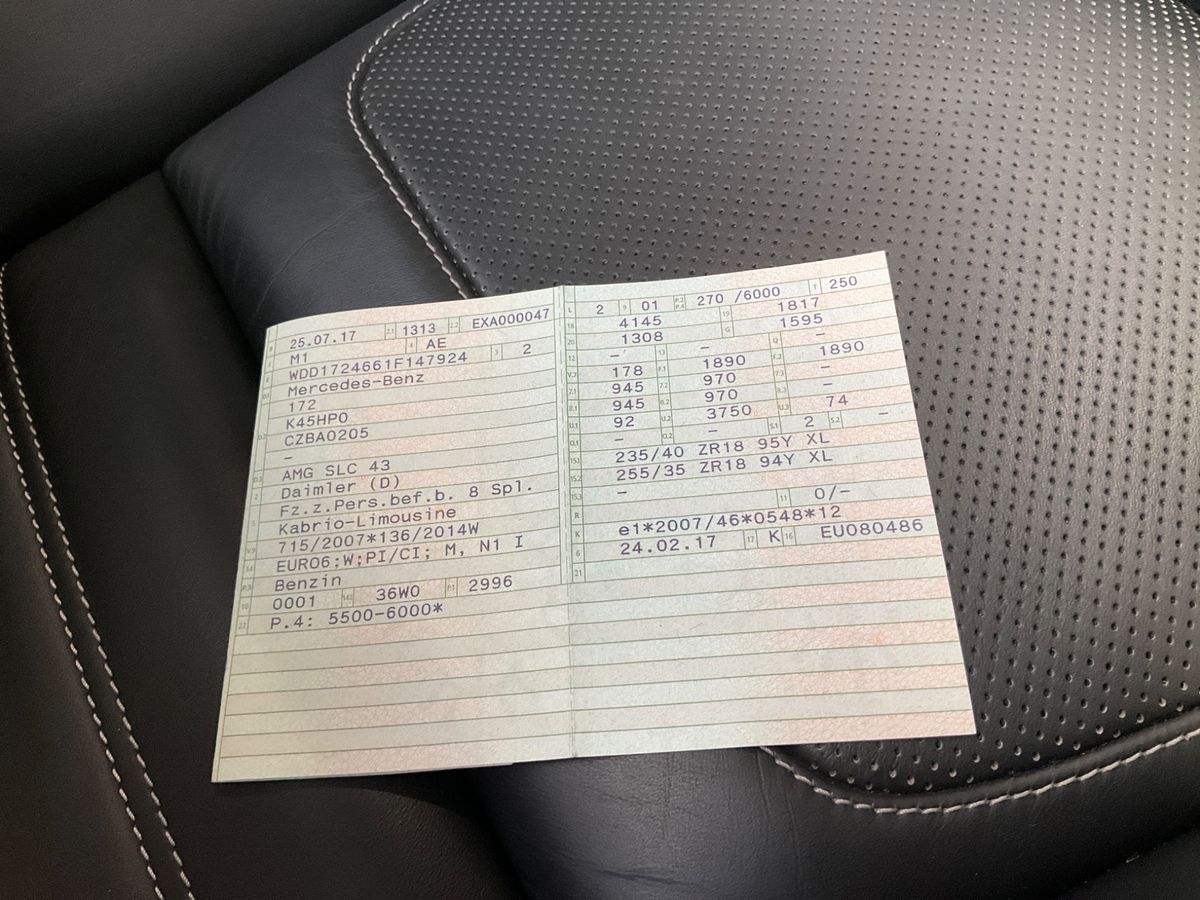 25.07.17 2.1 1313 2.2 EXA000047
M1 4 AE
WDD1724661F147924 3 2
Mercedes-Benz
172
K45HP0
CZBA0205
–
AMG SLC 43
Daimler (D)
Fz.z.Pers.bef.b. 8 Spl.
Kabrio-Limousine
715/2007*136/2014W
EURO6;W;PI/CI; M, N1 I
Benzin
0001 36W0 P.1 2996
P.4: 5500-6000*
L 2 9 01 P.2 P.4 270 /6000 T 250
18 4145 19 1817
20 1308 G 1595
12 – 13 – Q –
V.7 178 F.1 1890 F.2 1890
7.1 945 7.2 970 7.3 –
8.1 945 8.2 970 8.3 –
U.1 92 U.2 3750 U.3 74
O.1 – O.2 – S.1 2 S.2 –
15.1 235/40 ZR18 95Y XL
15.2 255/35 ZR18 94Y XL
15.3 –
R 11 0/–
K e1*2007/46*0548*12
6 24.02.17 17 K 16 EU080486
21